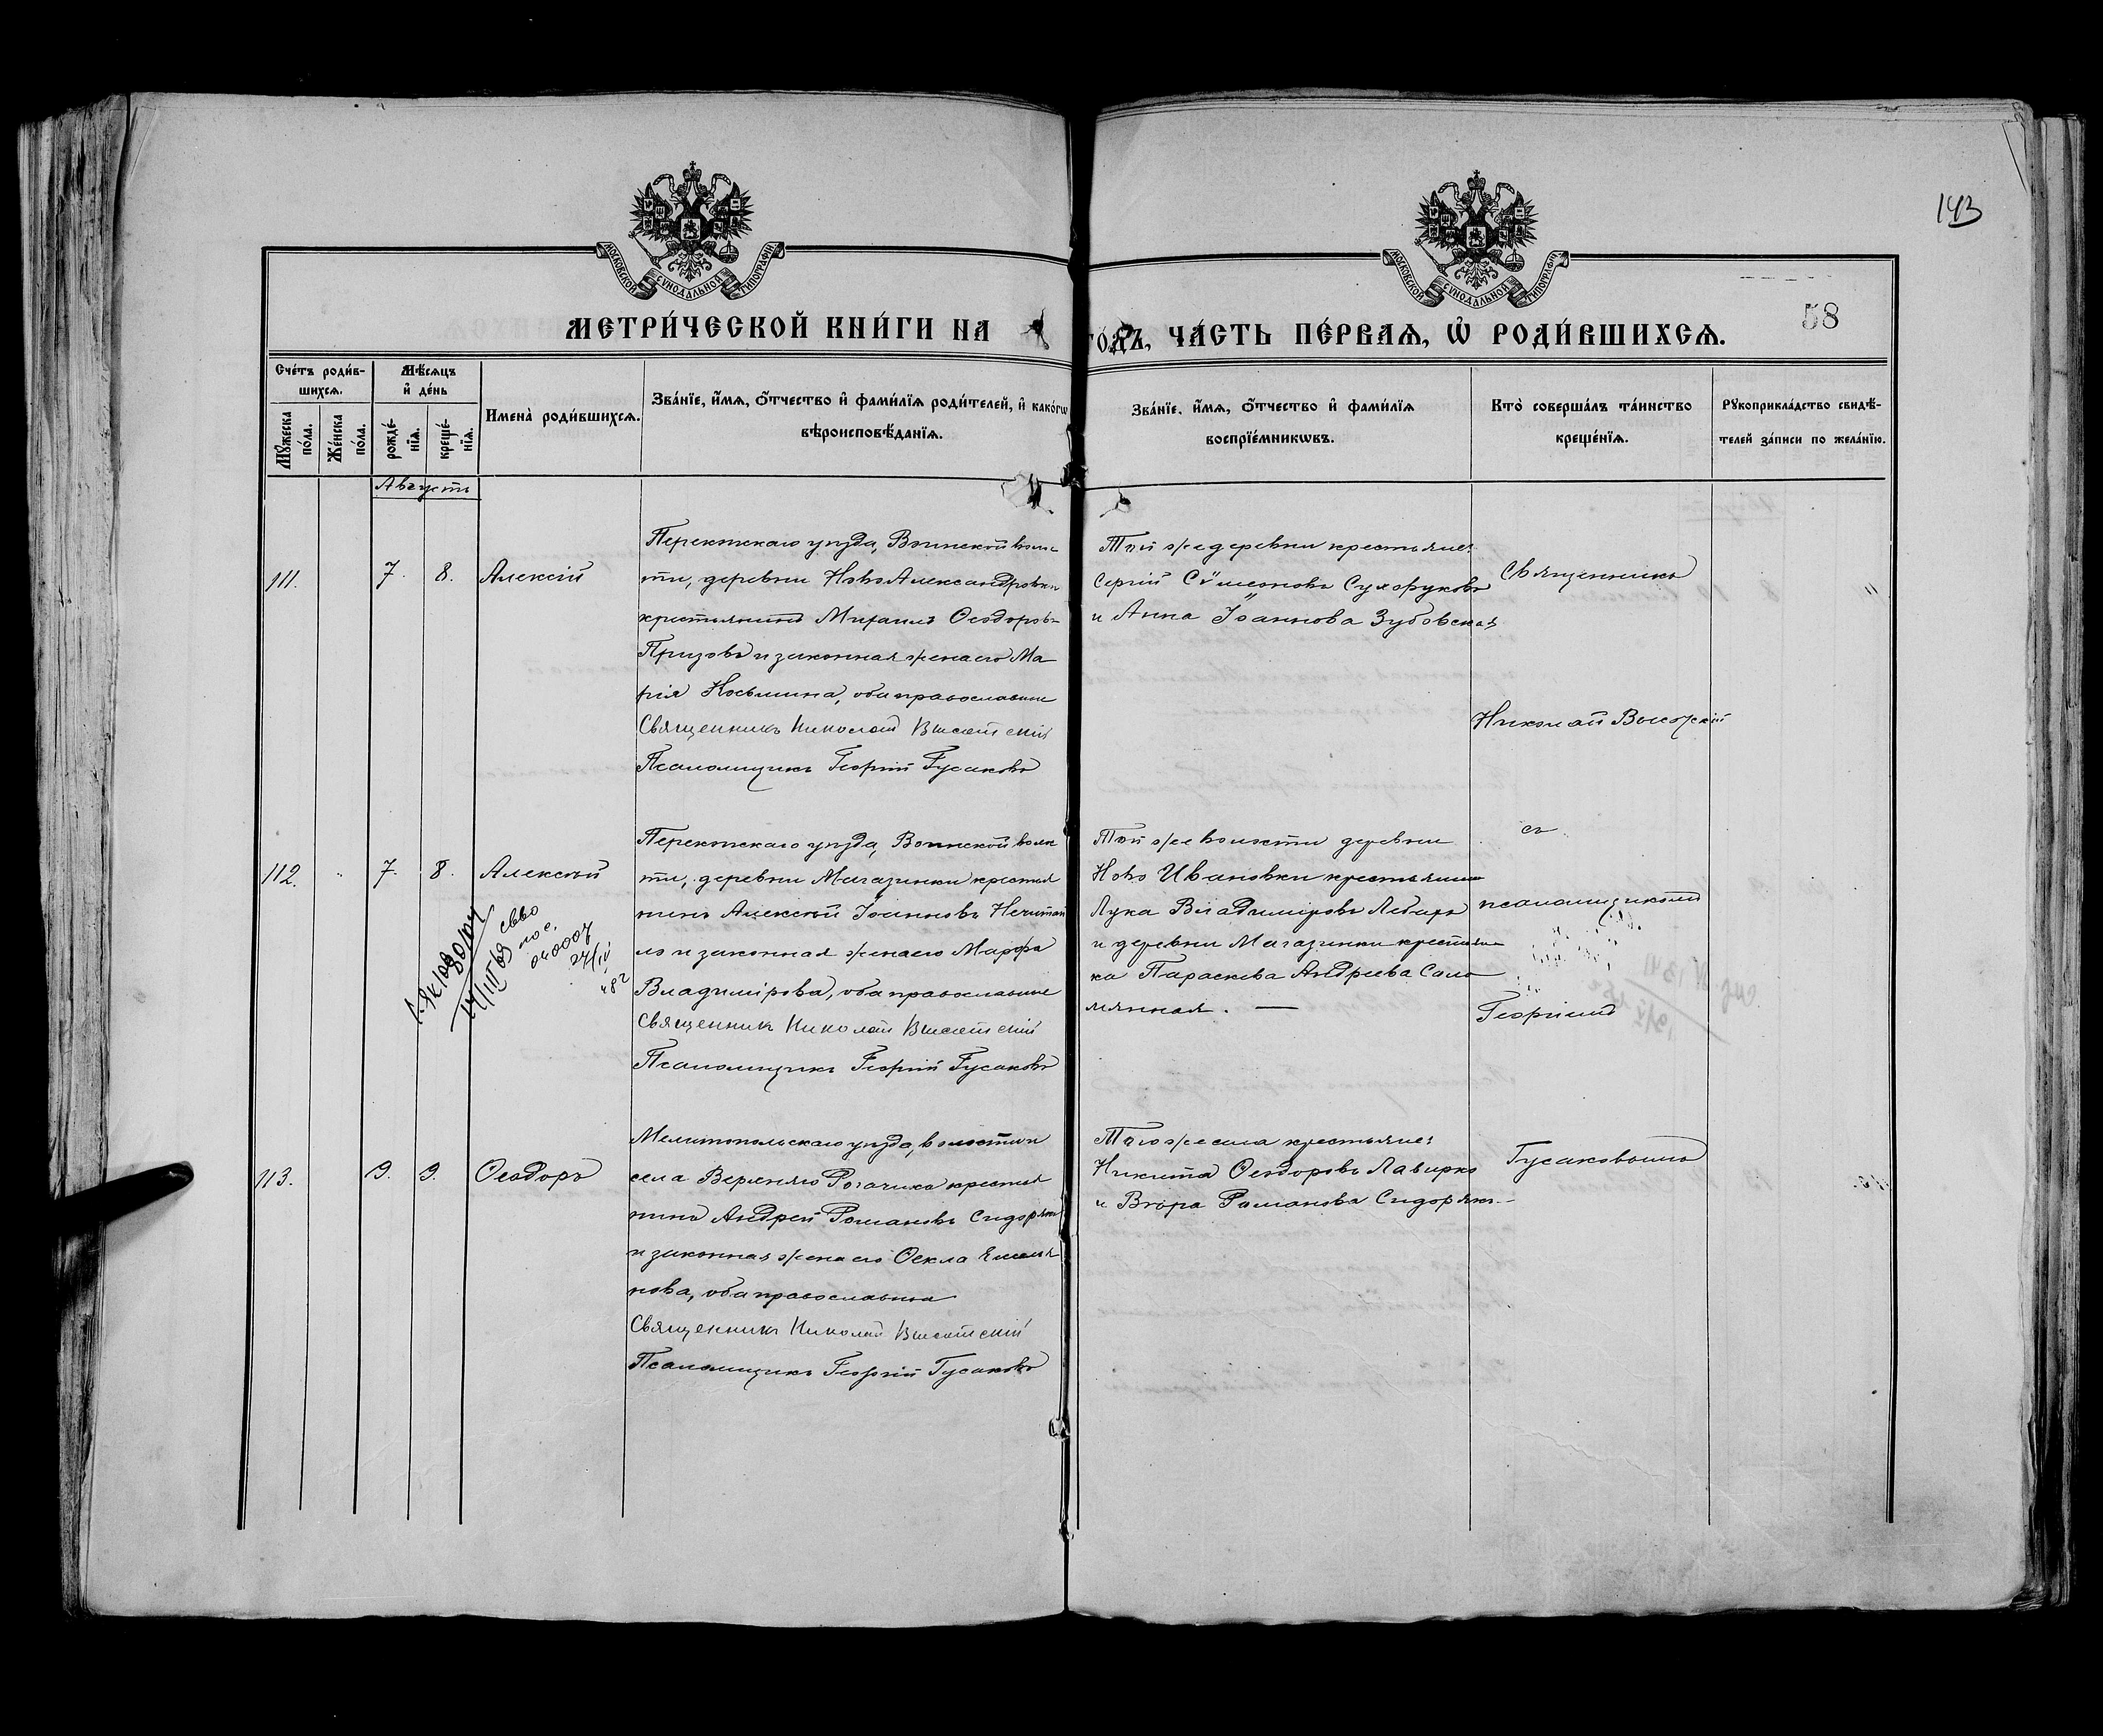 143
МОСКОВСКОЙ СѴНОДАЛЬНОЙ ТИПОГРАФІИ
МОСКОВСКОЙ СѴНОДАЛЬНОЙ ТИПОГРАФІИ
58
МЕТРИ́ЧЕСКОЙ КНИ́ГИ НА ГО́ДЪ, ЧА́СТЬ ПЕ́РВАѦ, Ѡ҆ РОДИ́ВШИХСѦ.
Сче́тъ роди́в-
шихсѧ.
Мꙋ́жеска по́ла.
Же́нска по́ла.
Мѣ́сѧцъ и҆ де́нь
рожде́-нїѧ.
креще́-нїѧ.
Имена̀ роди́вшихсѧ.
Зва́нїе, и҆́мѧ, ѻ҆́тчество и҆ фами́лїѧ роди́телей, и҆ како́гѡ
вѣроисповѣ́данїѧ.
Зва́нїе, и҆́мѧ, ѻ҆́тчество и҆ фами́лїѧ
воспрїе́мникѡвъ.
Кто̀ соверша́лъ та́инство
креще́нїѧ.
Рꙋкоприкла́дство свидѣ́-
телей за́писи по жела́нїю.
Августъ
111.
7.
8.
Алексій
Перекопскаго уѣзда, Воинской воло-
сти, деревни Ново Александровки
крестьянинъ Михаилъ Ѳеодоровъ
Призовъ и законная жена его Ма-
рія Косьмина, оба православные
Священникъ Николай Высотскій
Псаломщикъ Георгій Гусаковъ
Той же деревни крестьяне:
Сергій Сѵмеоновъ Сухоруковъ
и Анна Іоаннова Зубовская
Священникъ
Николай Высотскій
112.
7.
8.
Алексѣй
Перекопскаго уѣзда, Воинской воло
сти, деревни Магазинки крестья
нинъ Алексѣй Іоанновъ Нечитай
ло и законная жена его Марфа
Владимірова, оба православные
Священникъ Николай Высотскій
Псаломщикъ Георгій Гусаковъ
Той же волости деревни
Ново Ивановки крестьянинъ
Лука Владиміровъ Лебедь
и деревни Магазинки крестьян
ка Параскева Андреева Соло
мянная. —
съ
псаломщикомъ
Георгіемъ
113.
9.
9.
Ѳеодоръ
Мелитопольскаго уѣзда, волости и
села Верхняго Рогачика крестья
нинъ Андрей Романовъ Сидорякъ
и законная жена его Ѳекла Емелья
нова, оба православные
Священникъ Николай Высотскій
Псаломщикъ Георгій Гусаковъ
Того же села крестьяне:
Никита Ѳеодоровъ Лавирко
и Вѣра Романова Сидорякъ
Гусаковымъ